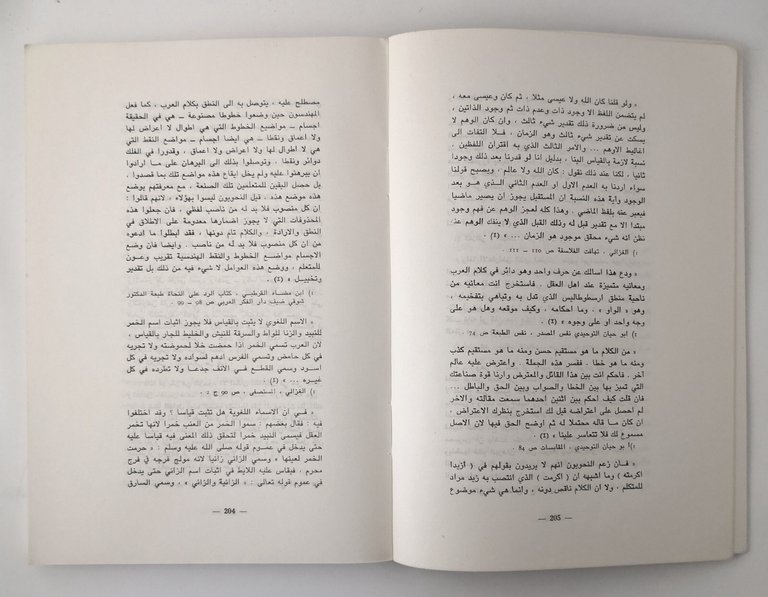 « ولو قلنا كان الله ولا عيسى مثلا ، ثم كان وعيسى معه ،
لم يتضمن اللفظ الا وجود ذات وعدم ذات ثم وجود الذاتين ،
وليس من ضرورة ذلك تقدير شيء ثالث ، وان كان الوهم لا
يسكت عن تقدير شيء ثالث وهو الزمان ، فلا التفات الى
اغاليط الاوهم ... والامر الثالث الذي به اقتران اللفظين .
نسبة لازمة بالقياس الينا ، بدليل انا لو قدرنا بعد ذلك وجودا
ثانيا ، لكنا عند ذلك نقول : كان الله ولا عالم ، ويصبح قولنا
سواء اردنا به العدم الاول او العدم الثاني الذي هو بعد
الوجود وآية هذه النسبة ان المستقبل يجوز ان يصير ماضيا
فيعبر عنه بلفظ الماضي . وهذا كله لعجز الوهم عن فهم وجود
مبتدأ الا مع تقدير قبل له وذلك القبل الذي لا ينفك الوهم عنه
نظن انه شيء محقق موجود هو الزمان ... » (1) .
1) الغزالي ، تهافت الفلاسفة ص 110 ــ 111 .
« ودع هذا اسالك عن حرف واحد وهو دائر في كلام العرب
ومعانيه متميزة عند اهل العقل . فاستخرج انت معانيه من
ناحية منطق ارسطوطاليس الذي تدل به وتباهي بتفخيمه ،
وهو « الواو » ، وما احكامه ، وكيف موقعه وهل هو على
وجه واحد او على وجوه » (1) .
1) ابو حيان التوحيدي نفس المصدر ، نفس الطبعة ص 74
« من الكلام ما هو مستقيم حسن ومنه ما هو مستقيم كذب
ومنه ما هو خطا . فسر هذه الجملة . واعترض عليه عالم
آخر . فاحكم انت بين هذا القائل والمعترض وارنا قوة صناعتك
التي تميز بها بين الخطا والصواب وبين الحق والباطل ...
فان قلت كيف احكم بين اثنين احدهما سمعت مقالته والاخر
لم احصل على اعتراضه قيل لك استخرج بنظرك الاعتراض ،
ان كان ما قاله محتملا له ثم اوضح الحق فيها لان الاصل
مسموع لك فلا تتعاسر علينا » (1) .
1) بو حيان التوحيدي ، المقابسات ص 84
« فان زعم النحويون انهم لا يريدون بقولهم في ( ازيدا
اكرمته ) وما اشبهه ان ( اكرمت ) الذي انتصب به زيد مراد
للمتكلم ، ولا ان الكلام ناقص دونه ، وانما هي شيء موضوع
— 205 —
مصطلح عليه ، يتوصل به الى النطق بكلام العرب ، كما فعل
المهندسون حين وضعوا خطوطا مصنوعة ــ هي في الحقيقة
اجسام ــ مواضع الخطوط التي هي اطوال لا اعراض لها
ولا اعماق ونقطا ــ هي ايضا اجسام ــ مواضع النقط التي
هي لا اطوال لها ولا اعراض ولا اعماق ، وقدورا في الفلك
دوائر ونقطا ، وتوصلوا بذلك الى البرهان على ما ارادوا
ان يبرهنوا عليه ولم يخل ايقاع هذه مواضع تلك بما قصدوا .
بل حصل اليقين للمتعلمين تلك الصنعة ، مع معرفتهم بوضع
هذه موضع هذه، قيل النحويون ليسوا بهؤلاء « لانهم قالوا :
ان كل منصوب فلا بد له من ناصب لفظي ، فان جعلوا هذه
المحذوفات التي لا يجوز اضمارها معدومة على الاطلاق في
النطق والارادة ، والكلام تام دونها ، فقد ابطلوا ما ادعوه
من ان كل منصوب فلا بد له من ناصب . وايضا فان وضع
الاجسام مواضع الخطوط والنقط الهندسية تقريب وعون
للمتعلم ، ووضع هذه العوامل لا شيء فيه من ذلك بل تقدير
وتخييل » (1) .
1) ابن مضاء القرطبي ، كتاب الرد على النحاة طبعة الدكتور
شوقي ضيف، دار الفكر العربي ص 98 ــ 99 .
« الاسم اللغوي لا يثبت بالقياس فلا يجوز اثبات اسم الخمر
للنبيد والزنا للواط والسرقة للنبش والخليط للجار بالقياس ،
لان العرب تسمي الخمر اذا حمضت خلا لحموضته ولا تجريه
في كل حامض وتسمي الفرس ادهم لسواده ولا تجريه في كل
اسود وتسمي القطع في الانف جدعا ولا تطرده في كل
غيره ... » (1) .
1) الغزالي ، المستصفى ، ص 90 ج 2 .
« في ان الاسماء اللغوية هل تثبت قياسا ؟ وقد اختلفوا
فيه : فقال بعضهم : سموا الخمر من العنب خمرا لانها تخمر
العقل فيسمى النبيد خمرا لتحقق ذلك المعنى فيه قياسا عليه
حتى يدخل في عموم قوله صلى الله عليه وسلم : « حرمت
الخمر لعينها » وسمي الزاني زانيا لانه مولج فرجه في فرج
محرم . فيقاس عليه اللايط في اثبات اسم الزاني حتى يدخل
في عموم قوله تعالى : « الزانية والزاني » ، وسمي السارق
— 204 —